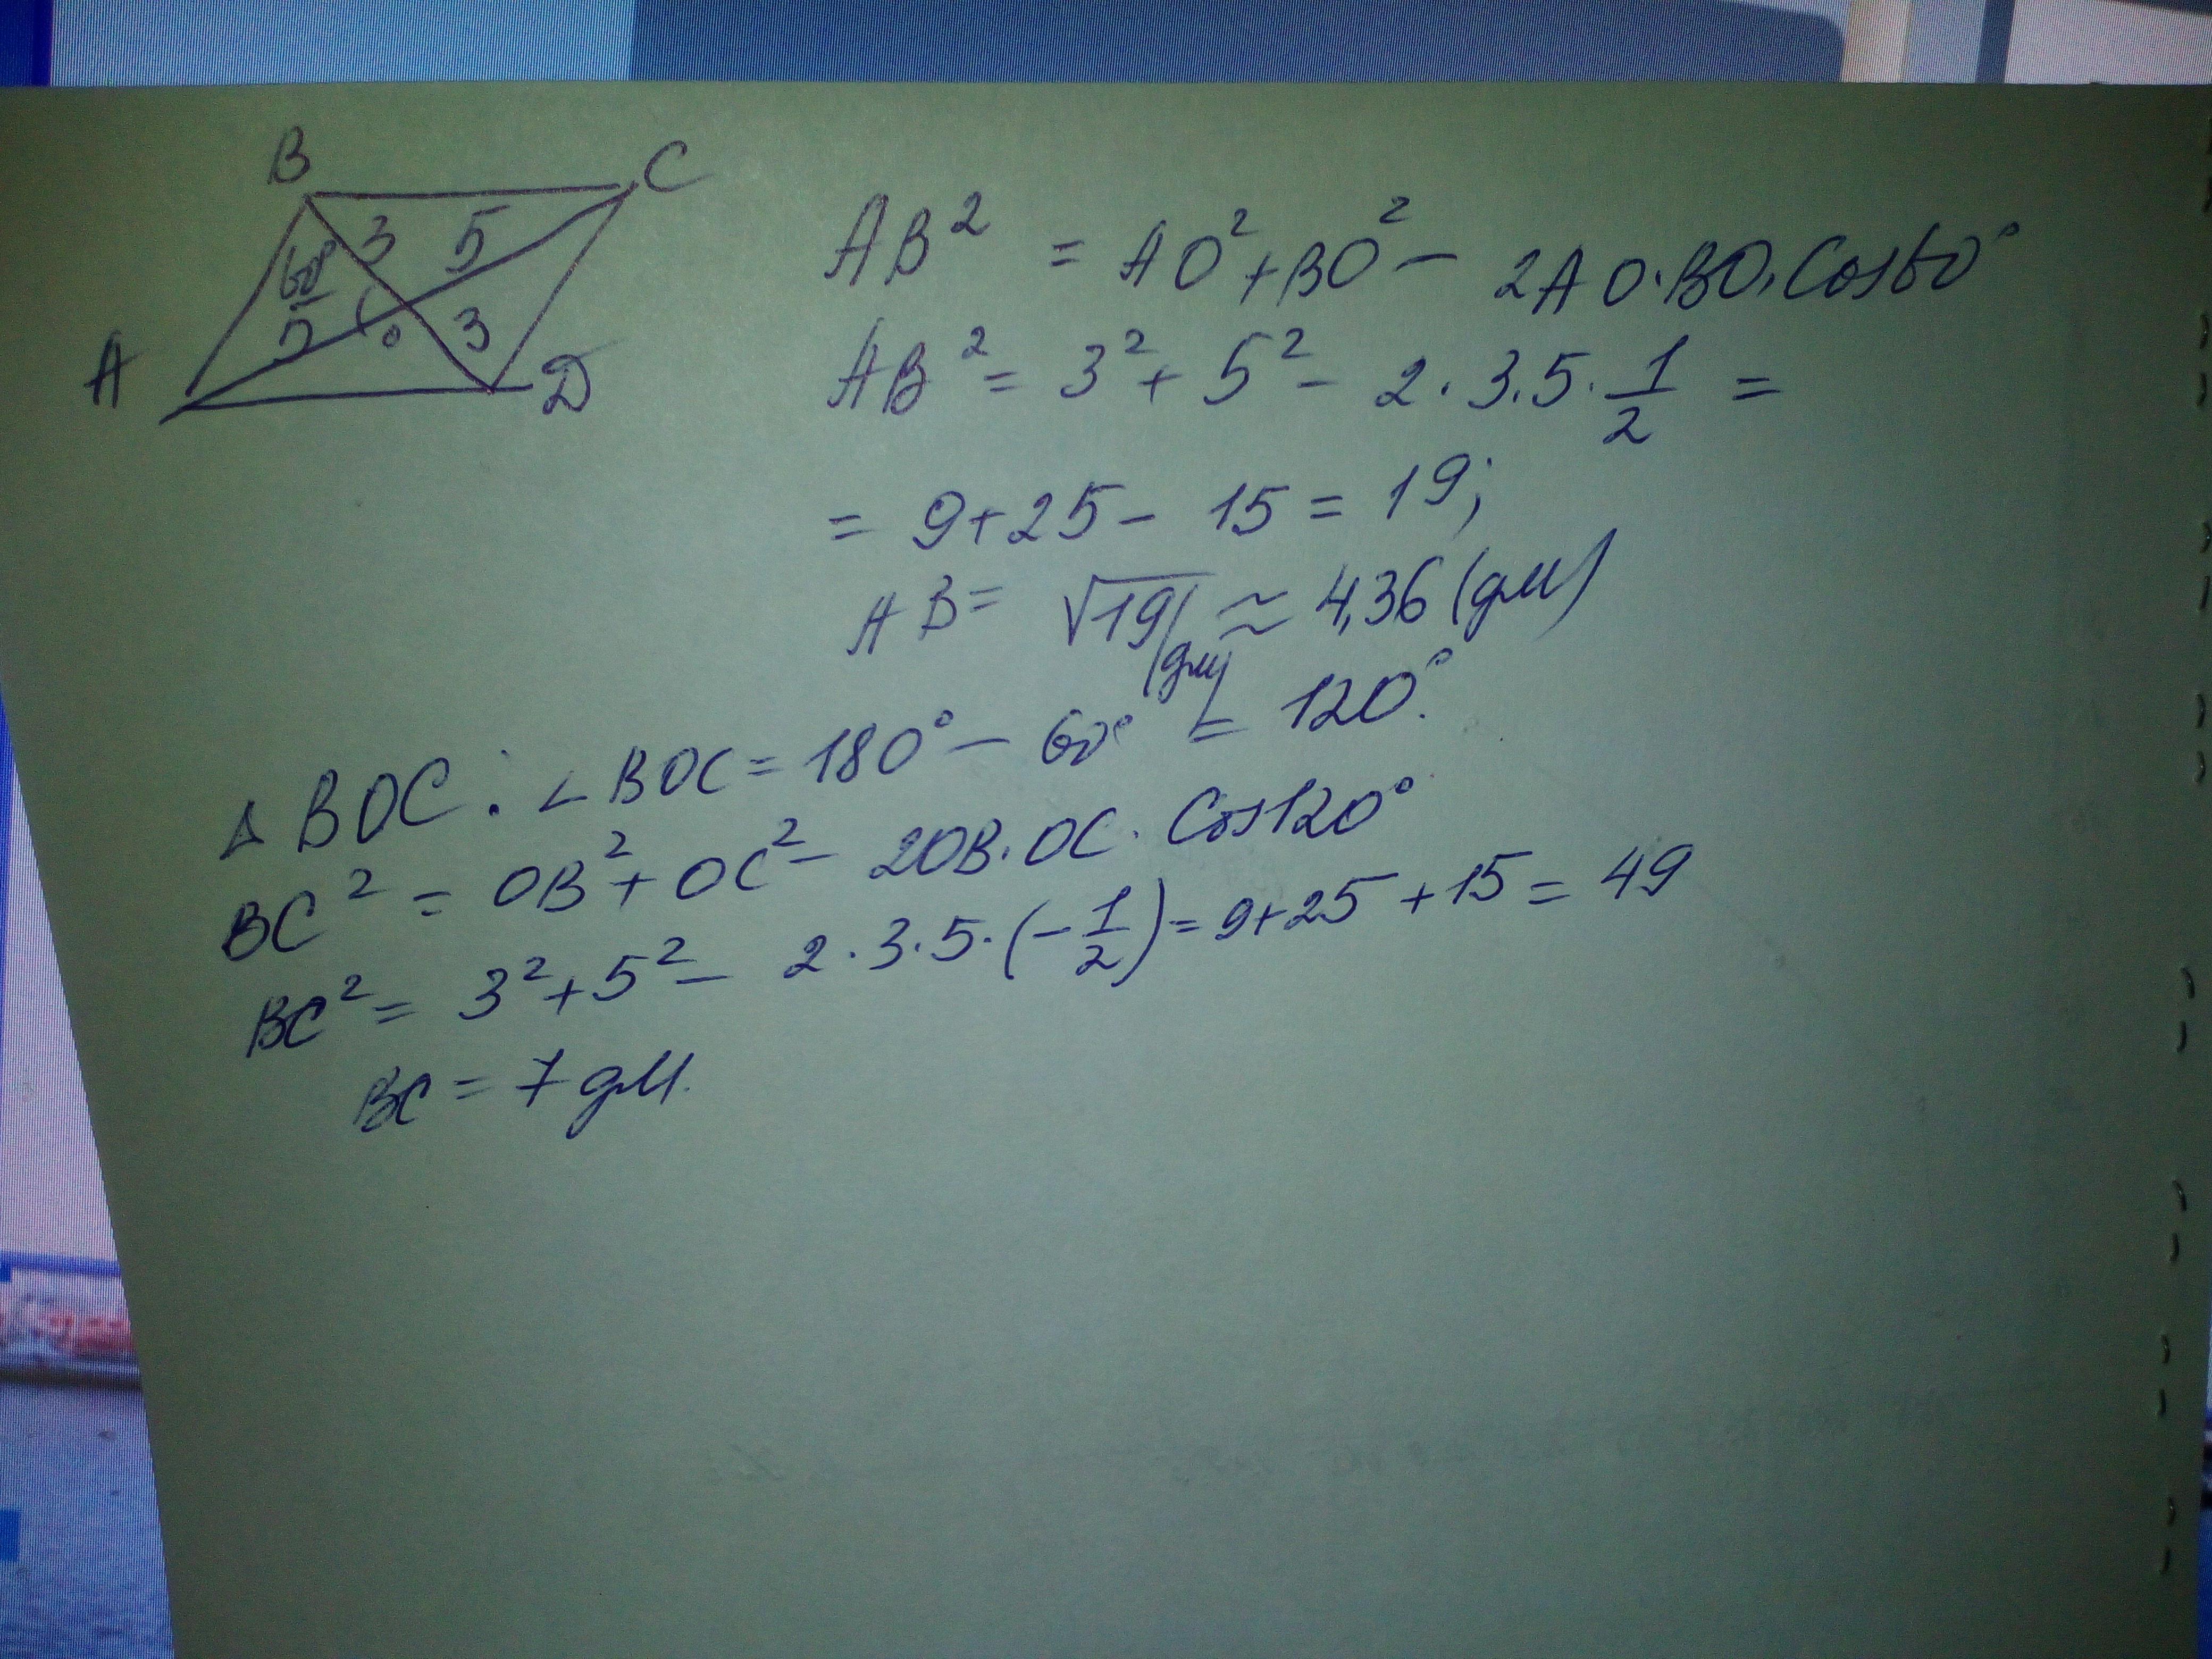 B
C
60°
3
5
5
o
3
A
D
AB² = AO² + BO² - 2AO·BO·Cos60°
AB² = 3² + 5² - 2·3·5·1/2 =
= 9+25 - 15 = 19;
AB = √19 (дм) ≈ 4,36 (дм)
△ BOC: ∠BOC = 180° - 60° = 120°.
BC² = OB² + OC² - 2OB·OC·Cos120°
BC² = 3² + 5² - 2·3·5·(-1/2) = 9+25+15 = 49
BC = 7 дм.